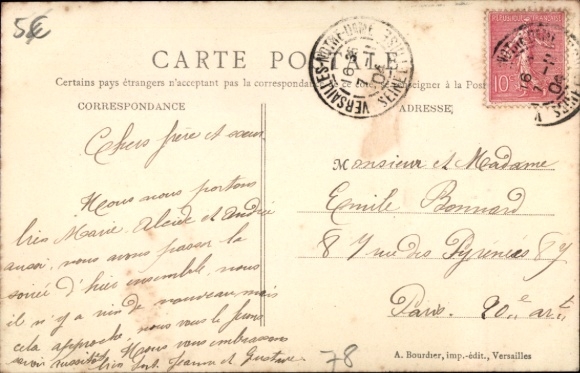 5€
CARTE POSTALE
Certains pays étrangers n'acceptent pas la correspondance
se renseigner à la Poste
CORRESPONDANCE
ADRESSE
VERSAILLES-NOTRE-DAME
RÉPUBLIQUE FRANÇAISE
10
Chers frère et sœur
Nous nous portons
très Marie Alcide et André
aussi, nous avons passer la
soirée d'hier ensemble, nous
il n'y a rien de nouveau, mais
cela approche, nous vous le ferons
savoir aussitôt. Nous vous embrassons
très fort. Jeanne et Gustave
Monsieur et Madame
Emile Bonnard
87 rue des Pyrénées 87
Paris. 20e art
78
A. Bourdier, imp.-édit., Versailles